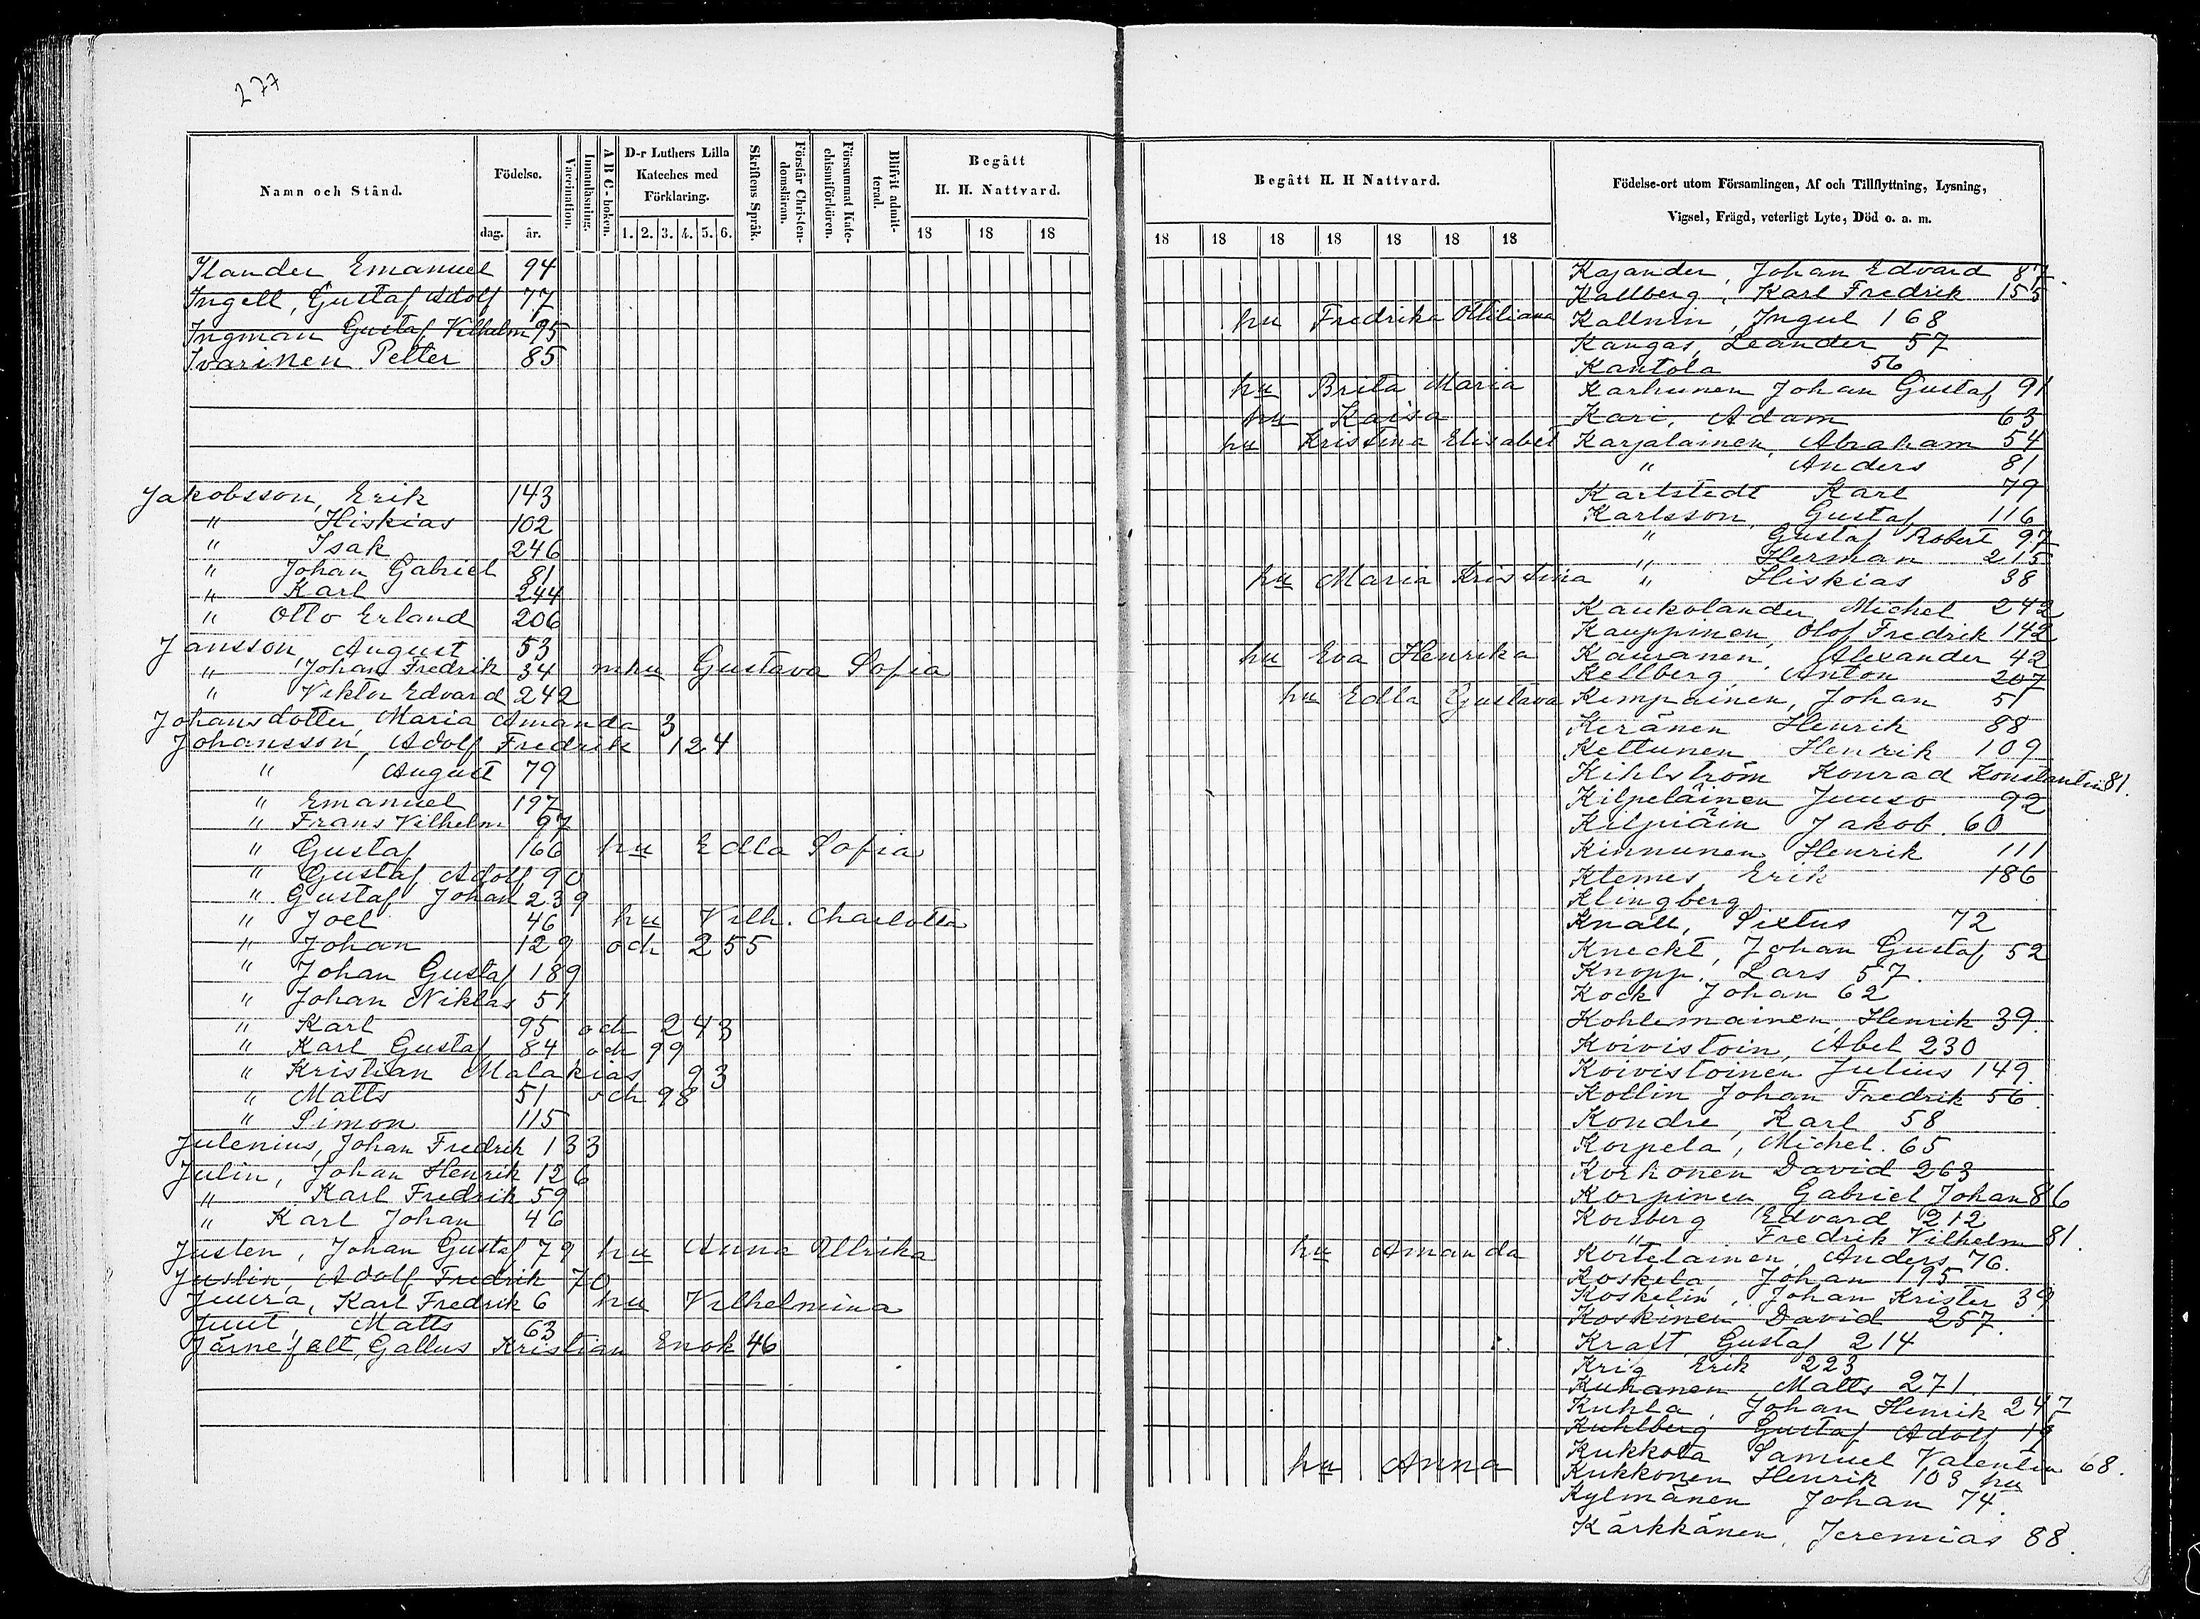 277
Namn och Stånd.
Födelse.
dag.
år.
Vaccination.
Innanläsning.
A B C-boken.
D-r Luthers Lilla
Kateches med
Förklaring.
1. 2. 3. 4. 5. 6.
Skriftens Språk.
Förstår Christen-
domsläran.
Försummat Kate-
chismiförhören.
Blifvit admit-
terad.
Begått
H. H. Nattvard.
18 18 18
Ilander Emanuel 94
Ingell, Gustaf Adolf 77
Ingman Gustaf Vilhelm 95
Ivarinen Petter 85
Jakobsson, Erik 143
" Hiskias 102
" Isak 246
" Johan Gabriel 81
" Karl 244
" Otto Erland 206
Jansson August 53
" Johan Fredrik 34 mhu Gustava Sofia
" Viktor Edvard 242
Johansdotter Maria Amanda 3
Johansson, Adolf Fredrik 124
" August 79
" Emanuel 197
" Frans Vilhelm 97
" Gustaf 166 hu Edla Sofia
" Gustaf Adolf 90
" Gustaf Johan 239
" Joel 46 hu Vilh. Charlotta
" Johan 129 och 255
" Johan Gustaf 189
" Johan Niklas 51
" Karl 95 och 243
" Karl Gustaf 84 och 99
" Kristian Malakias 93
" Matts 51 och 98
" Simon 115
Julenius, Johan Fredrik 133
Julin, Johan Henrik 126
" Karl Fredrik 59
" Karl Johan 46
Justen, Johan Gustaf 79 hu Anna Ullrika
Juslin, Adolf Fredrik 70
Juura, Karl Fredrik 6 hu Vilhelmina
Juut, Matts 63
Järnefelt, Gallus Kristian Enok 46
Begått H. H Nattvard.
18 18 18 18 18 18 18
Födelse-ort utom Församlingen, Af och Tillflyttning, Lysning,
Vigsel, Frägd, veterligt Lyte, Död o. a. m.
Kajander, Johan Edvard 87.
Kallberg, Karl Fredrik 155
hu Fredrika Ottiliana Kallnin, Ingel 168
Kangas, Leander 57
Kantola 56
hu Brita Maria Karhunen Johan Gustaf 91
hu Kaisa Kari, Adam 63
hu Kristina Elisabet Karjalainen, Abraham 54
" Anders 81
Karlstedt Karl 79
Karlsson, Gustaf 116
" Gustaf Robert 97
" Herman 215
hu Maria Kristina " Hiskias 38
Kaukolander Michel 242
Kauppinen, Olof Fredrik 142
hu Eva Henrika Kauranen, Alexander 42
Kellberg Anton 207
hu Edla Gustava Kempainen, Johan 51
Keränen Henrik 88
Kettunen Henrik 109
Kihlström Konrad Konstantin 81.
Kilpeläinen Juuso 92
Kilpiäin Jakob. 60
Kinnunen Henrik 111
Klemes Erik 186
Klingberg
Knall, Sixtus 72
Kneckt, Johan Gustaf 52
Knopp. Lars 57.
Kock Johan 62
Kohlemainen, Henrik 39.
Koivistoin, Abel 230
Koivistoinen Julius 149.
Kollin Johan Fredrik 56.
Kondre, Karl 58
Korpela, Michel. 65
Korhonen David 263
Korpinen Gabriel Johan 86
Korsberg Edvard 212
" Fredrik Vilhelm 81.
hu Amanda Kortelainen, Anders 76.
Koskela, Johan 195
Koskelin, Johan Krister 39
Koskinen David 257.
Kraft Gustaf 214
Krig Erik 223
Kuhanen Matts 271.
Kuhla, Johan Henrik 247
Kuhlberg Gustaf Adolf 19
Kukkola Samuel Valentin 68.
hu Anna Kukkonen Henrik 103 hu
Kylmänen Johan 74.
Kärkkänen, Jeremias 88.